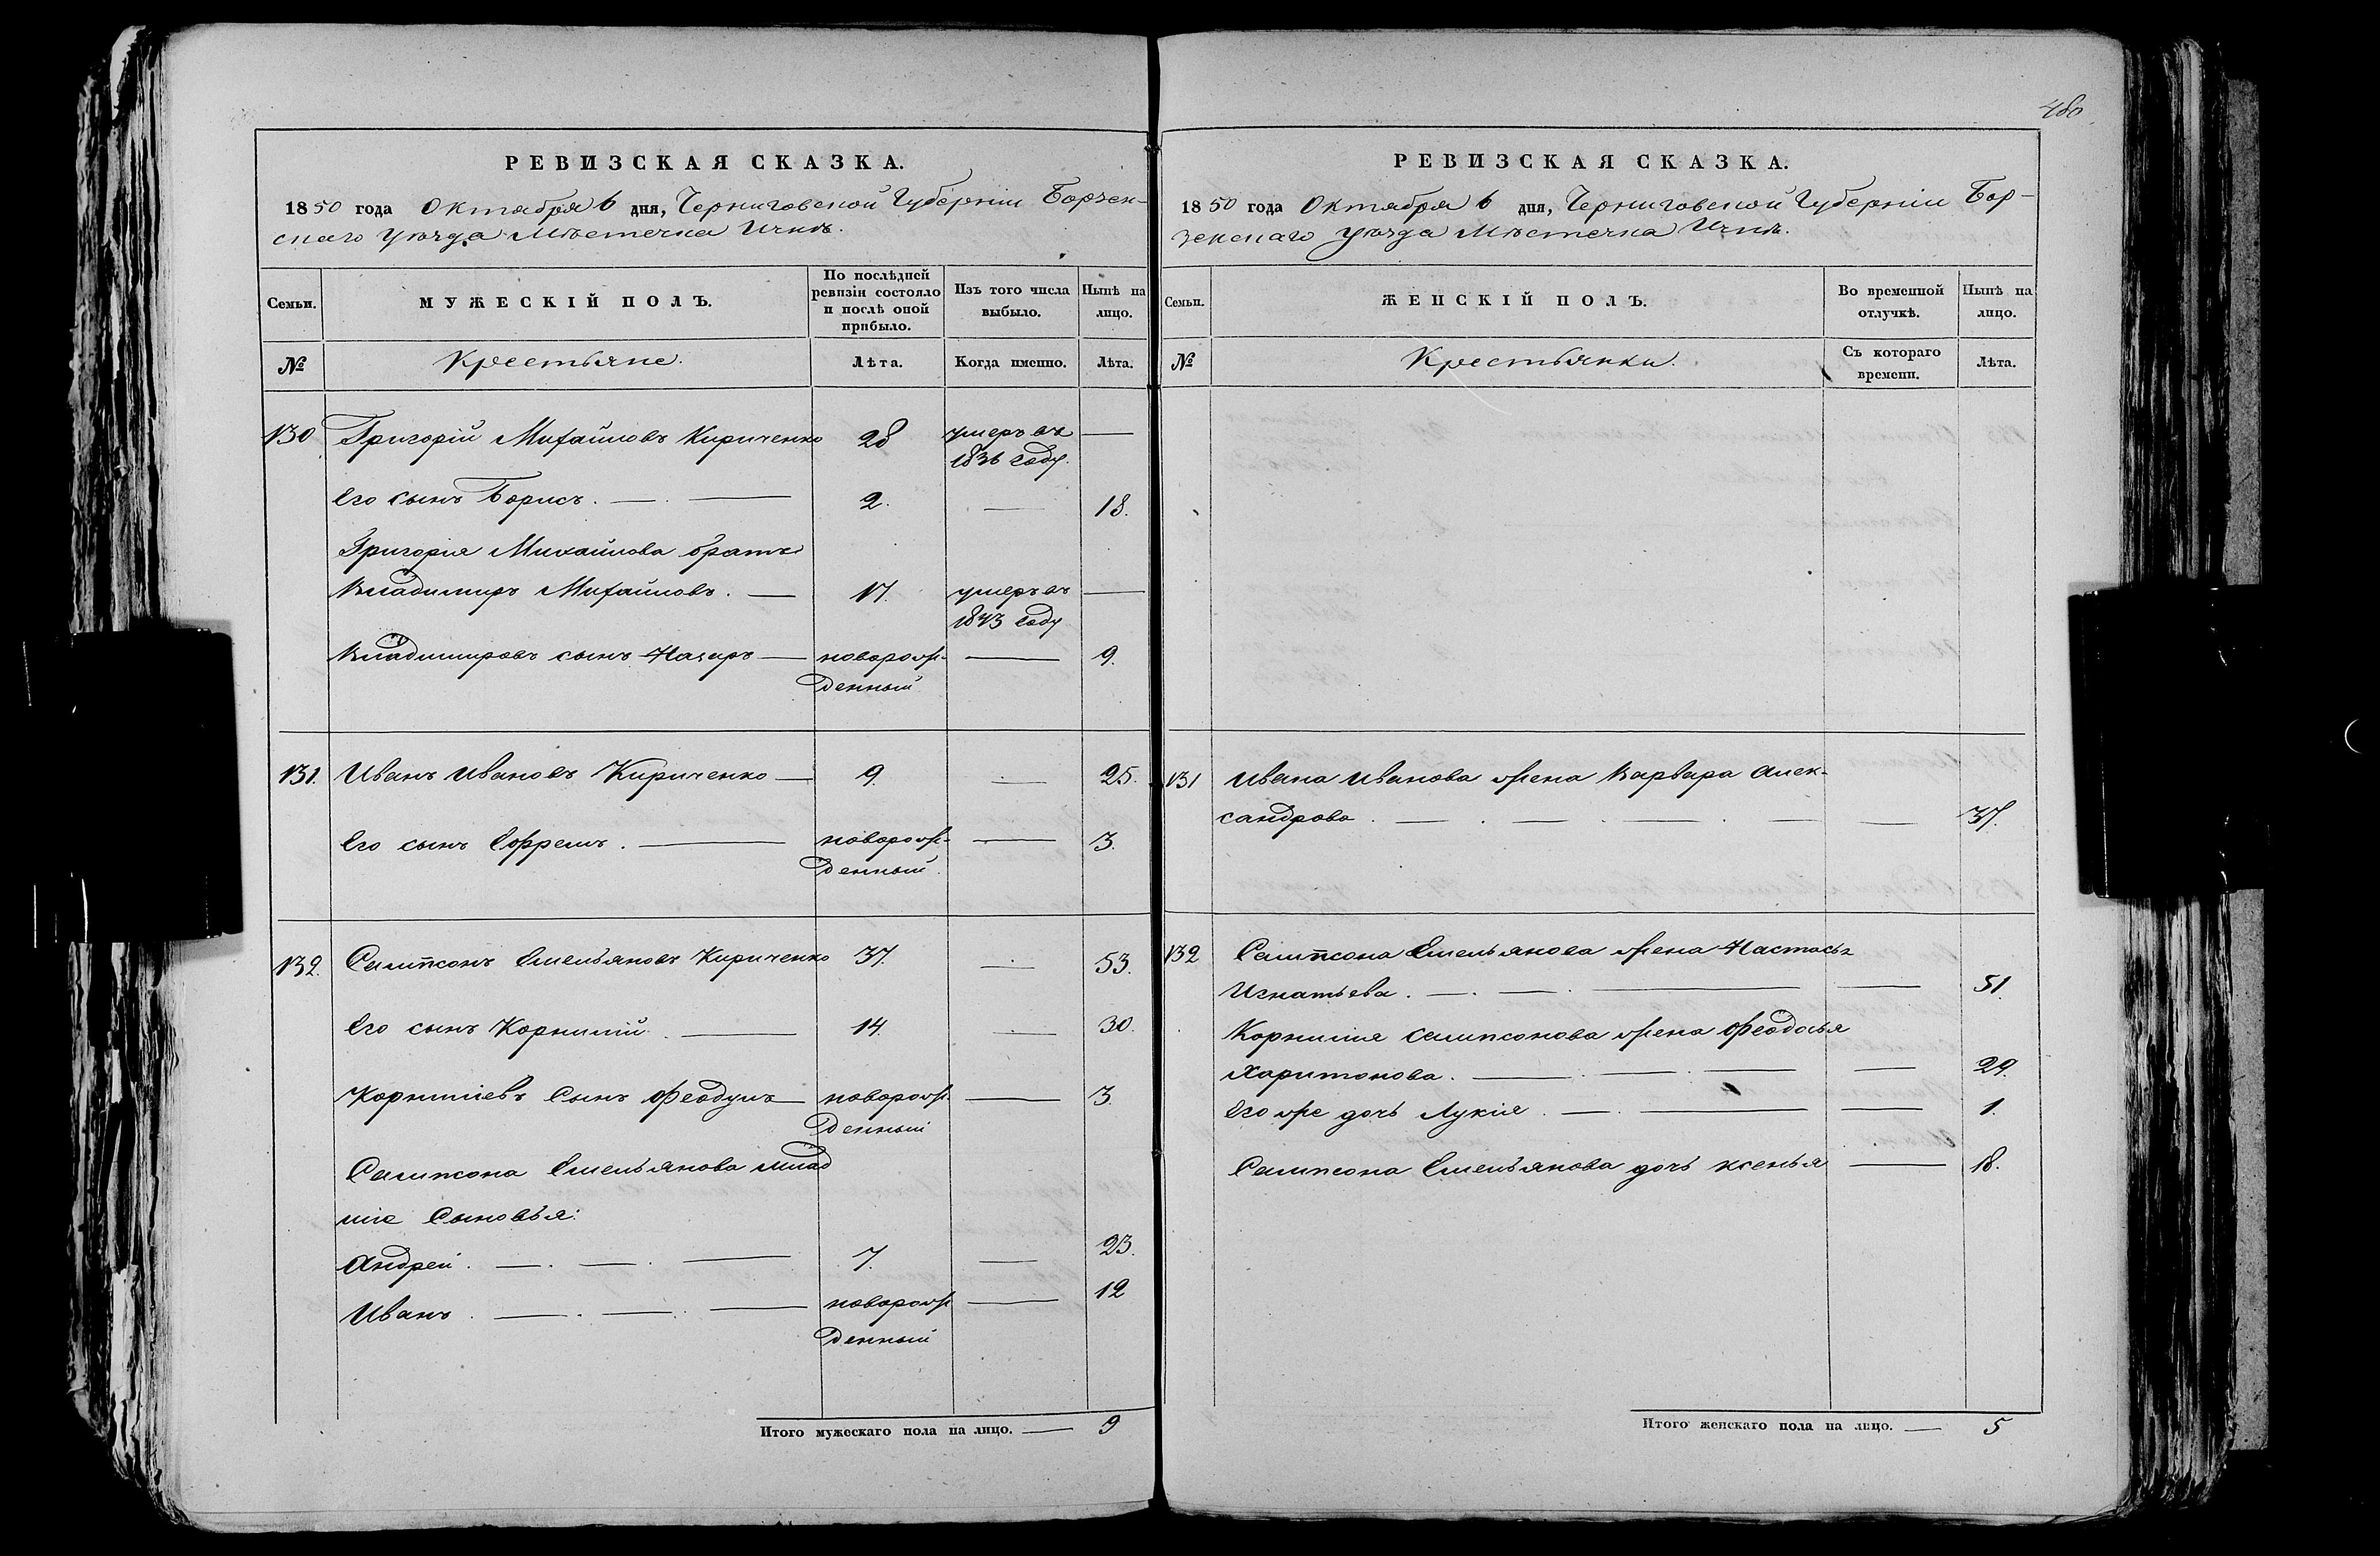 РЕВИЗСКАЯ СКАЗКА.
1850 года Октября 6 дня, Черниговской Губерніи Борзен-
скаго Уѣзда Мѣстечка Ични.
Семьи.
МУЖЕСКІЙ ПОЛЪ.
По послѣдней ревизіи состояло и послѣ оной прибыло.
Изъ того числа выбыло.
Нынѣ на лицо.
№ Крестьяне. Лѣта. Когда именно. Лѣта.
130 Григорій Михайловъ Кириченко 28 умеръ въ —
1836 году.
Его сынъ Борисъ. — — 2. — 18.
Григорія Михайлова братъ
Владимиръ Михайловъ. — 17. умеръ въ —
1843 году
Владимировъ сынъ Назаръ — новорож- — 9.
денный
131. Иванъ Ивановъ Кириченко — 9. — 25.
Его сынъ Ефремъ. — новорож- — 3.
денный.
132. Сампсонъ Емельяновъ Кириченко 37. — 53.
Его сынъ Корнилій. — 14. — 30.
Корниліевъ Сынъ Феодулъ — новорож — 3.
денный
Сампсона Емельянова млад
шіе Сыновья:
Андрей. — . — . — 7. — 23.
Иванъ. — . — . — новорож — 12
денный
Итого мужескаго пола на лицо. — 9
480
РЕВИЗСКАЯ СКАЗКА.
1850 года Октября 6 дня, Черниговской Губерніи Бор-
зенскаго Уѣзда Мѣстечка Ични.
Семьи.
ЖЕНСКІЙ ПОЛЪ.
Во временной отлучкѣ.
Нынѣ на лицо.
№ Крестьянки. Съ котораго времени. Лѣта.
131 Ивана Иванова жена Варвара Алек-
сандрова. — . — . — . — — 37.
132 Сампсона Емельянова жена Настасья
Игнатьева. — . — . — — 51.
Корнилія Сампсонова жена Феодосья
Харитонова. — . — . — — 29.
Его же дочь Лукія. — . — — 1.
Сампсона Емельянова дочь Ксенья — 18.
Итого женскаго пола на лицо. — 5